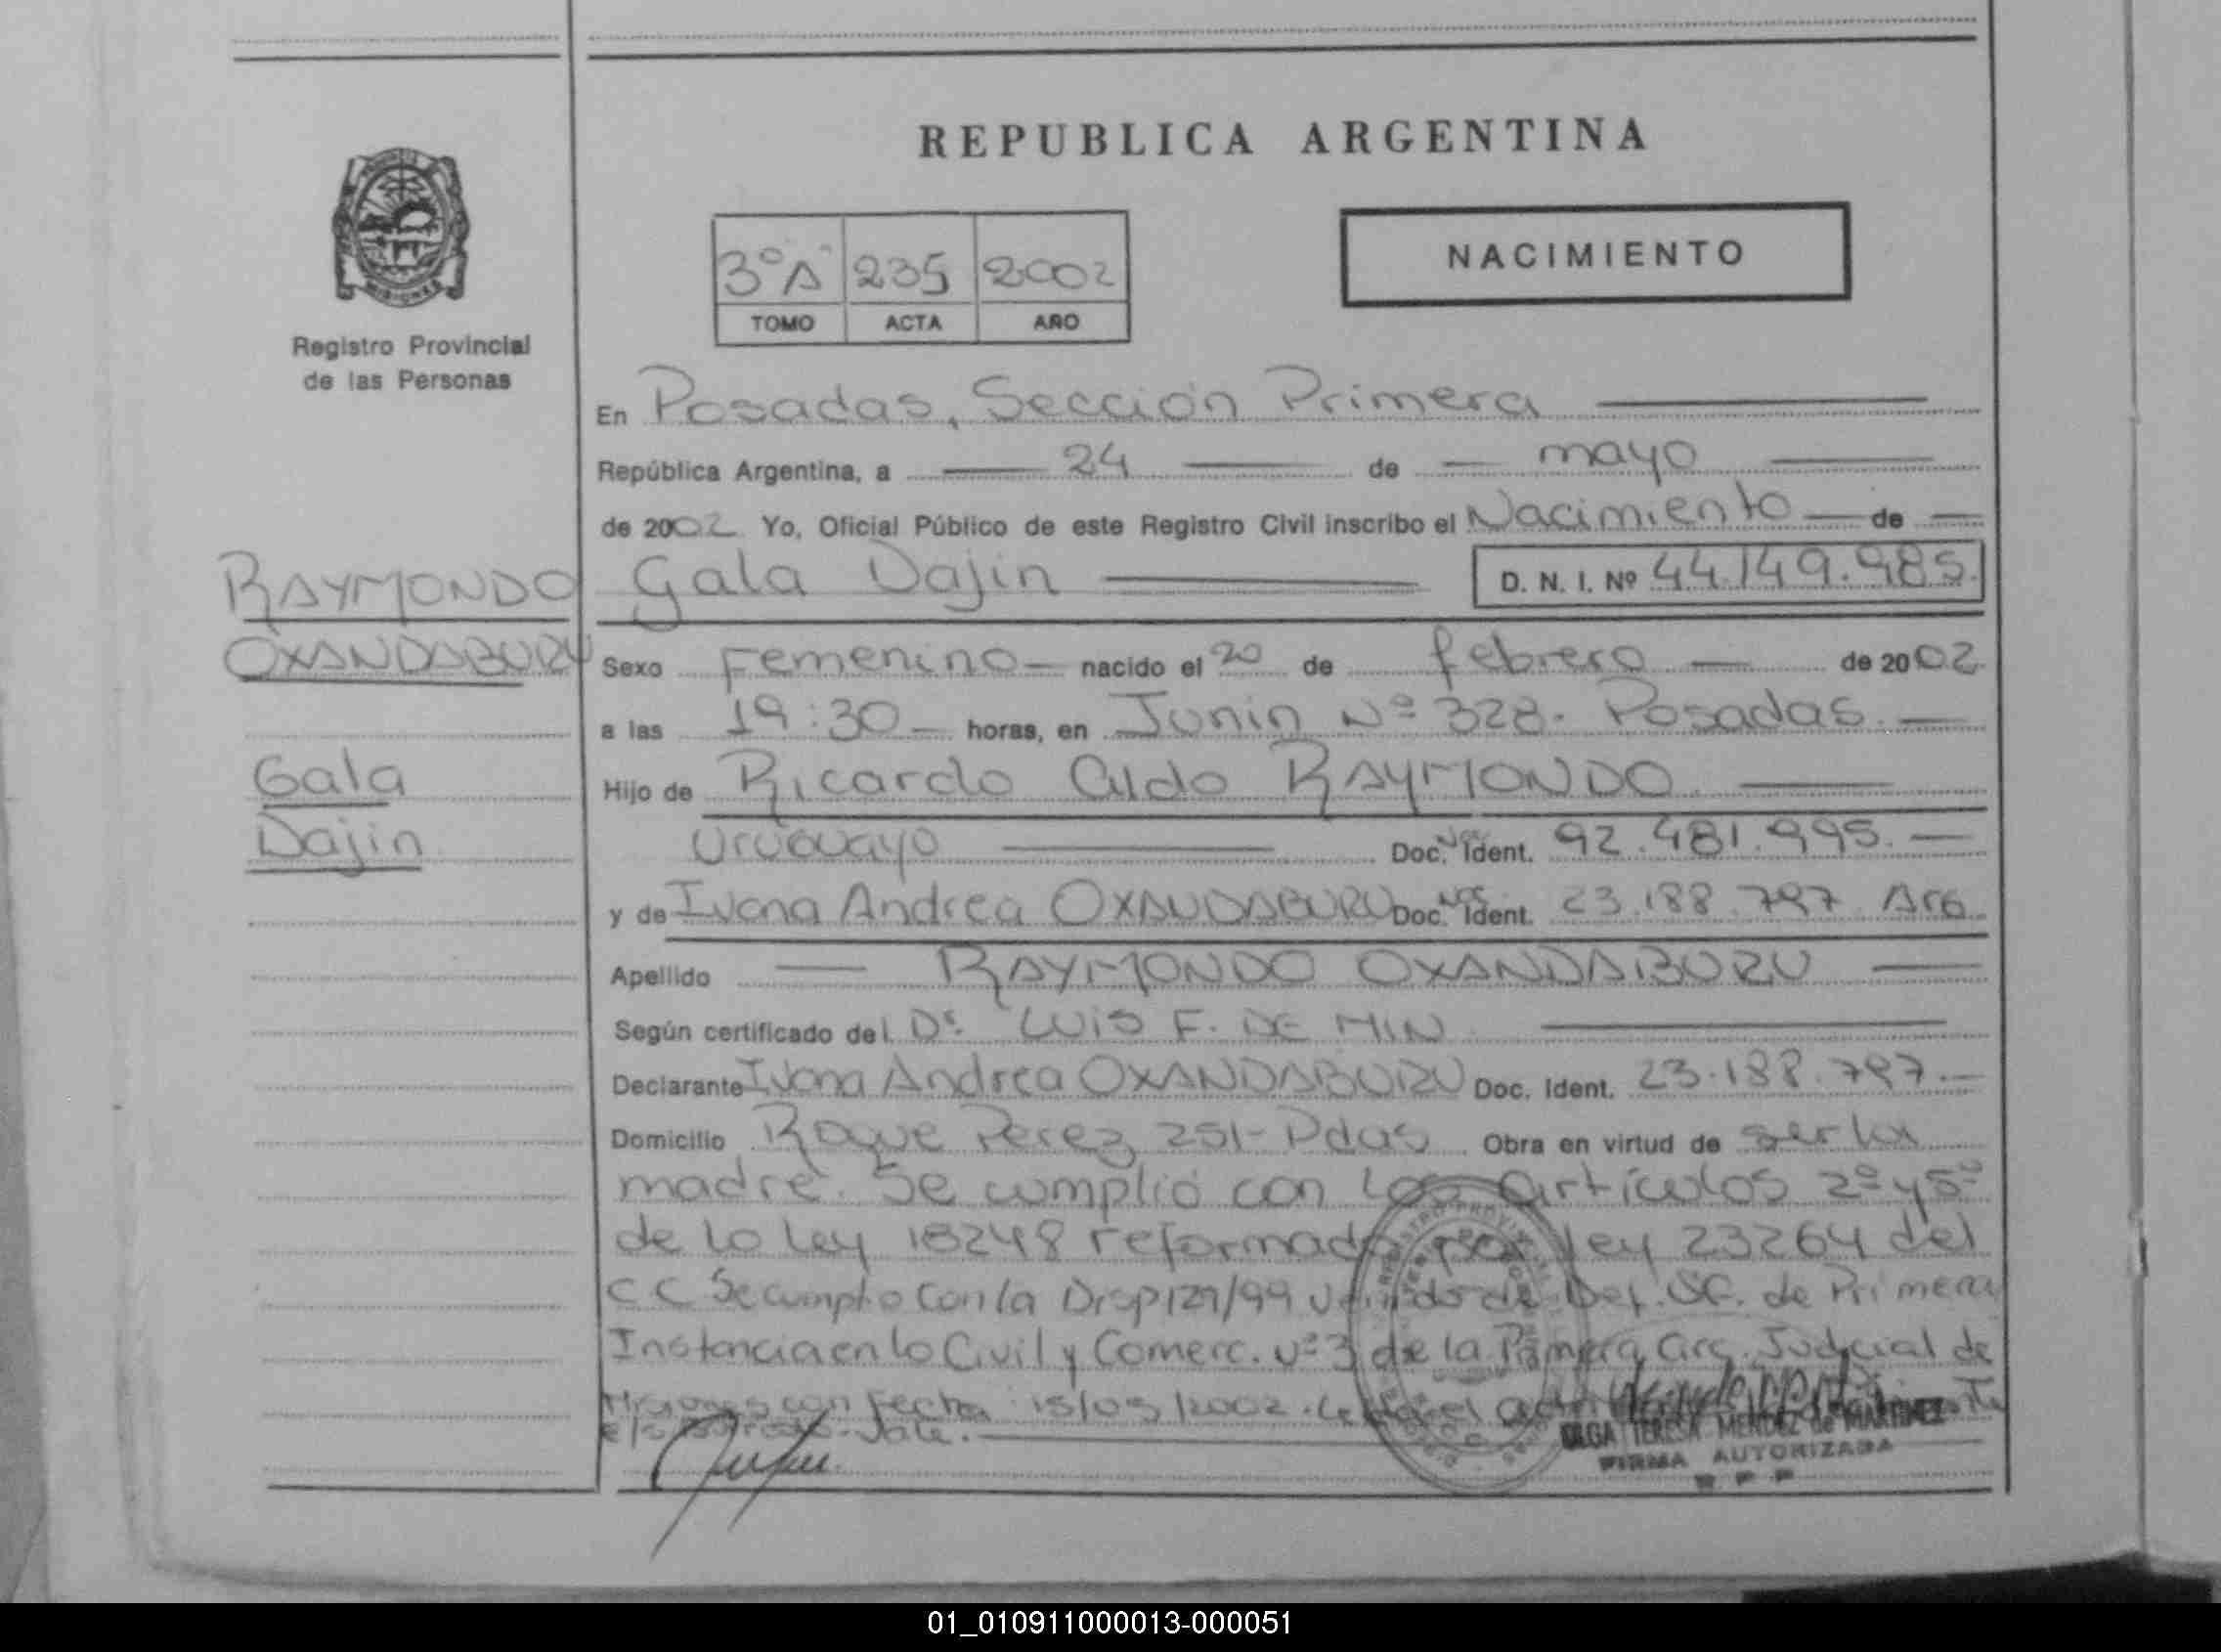 REPUBLICA ARGENTINA
MISIONES
Registro Provincial
de las Personas
3º "A" 235 2002
TOMO ACTA AÑO
NACIMIENTO
En Posadas, Sección Primera
República Argentina, a 24 de mayo
de 2002 Yo, Oficial Público de este Registro Civil inscribo el Nacimiento de
RAYMONDO
OXANDABURU
Gala
Dajin
Gala Dajin D. N. I. Nº 44.149.985.
Sexo Femenino nacido el 20 de febrero de 2002
a las 19:30 horas, en Junin Nº 328. Posadas.
Hijo de Ricardo Aldo RAYMONDO
Uruguayo Doc. Ident. 92.481.995.
y de Ivana Andrea OXANDABURU Doc. Ident. 23.188.797 Arg
Apellido RAYMONDO OXANDABURU
Según certificado del Dr. LUIS F. DE MIN
Declarante Ivana Andrea OXANDABURU Doc. Ident. 23.188.797.
Domicilio Roque Perez 251-Pdas Obra en virtud de ser la
madre. Se cumplió con los artículos 2º y 5º
de la ley 18248 reformada por ley 23264 del
C C Se cumplio con la Disp 129/99 de Def. de Primera
Instancia en lo Civil y Comerc. Nº 3 de la Primera Circ. Judicial de
Misiones con fecha 15/05/2002. el acta
Vale.
OLGA TERESA MENDEZ de MARTINEZ
FIRMA AUTORIZADA
01_010911000013-000051